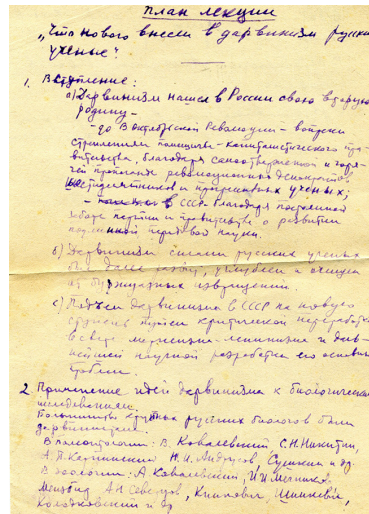 План лекции
„Что нового внесли в дарвинизм русские
ученые“
1. Вступление:
а) Дарвинизм нашел в России свою вторую
родину –
– до В. Октябрьской Революции – вопреки
стремлениям помещичье-капиталистического пра-
вительства, благодаря самоотверженной и горя-
чей пропаганде революционных демократов
шестидесятников и прогрессивных ученых;
– в СССР благодаря постоянной
заботе партии и правительства о развитии
подлинной передовой науки.
б) Дарвинизм силами русских ученых
был далее развит, углублен и очищен
от буржуазных извращений.
с) Подъем дарвинизма в СССР на новую
ступень путем критической переработки
в свете марксизма-ленинизма и даль-
нейшей научной разработки его основных
проблем.
2. Применение идей дарвинизма к биологическим
исследованиям.
Большинство крупных русских биологов были
дарвинистами.
В палеонтологии: В. Ковалевский, С.Н. Никитин,
А.П. Карпинский, Н.И. Андрусов, Сушкин и др.
В зоологии: А. Ковалевский, И.И. Мечников,
Мензбир, А.Н. Северцов, Книпович, Шимкевич,
Холодковский и др.